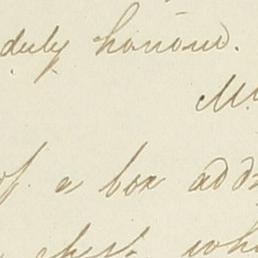 duly honour.
of a box add
chest wh